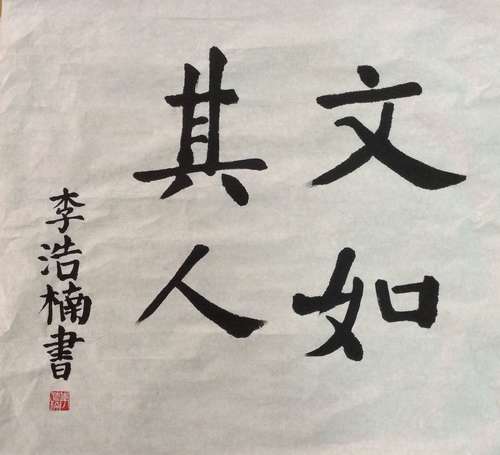 文如
其人
李浩楠書